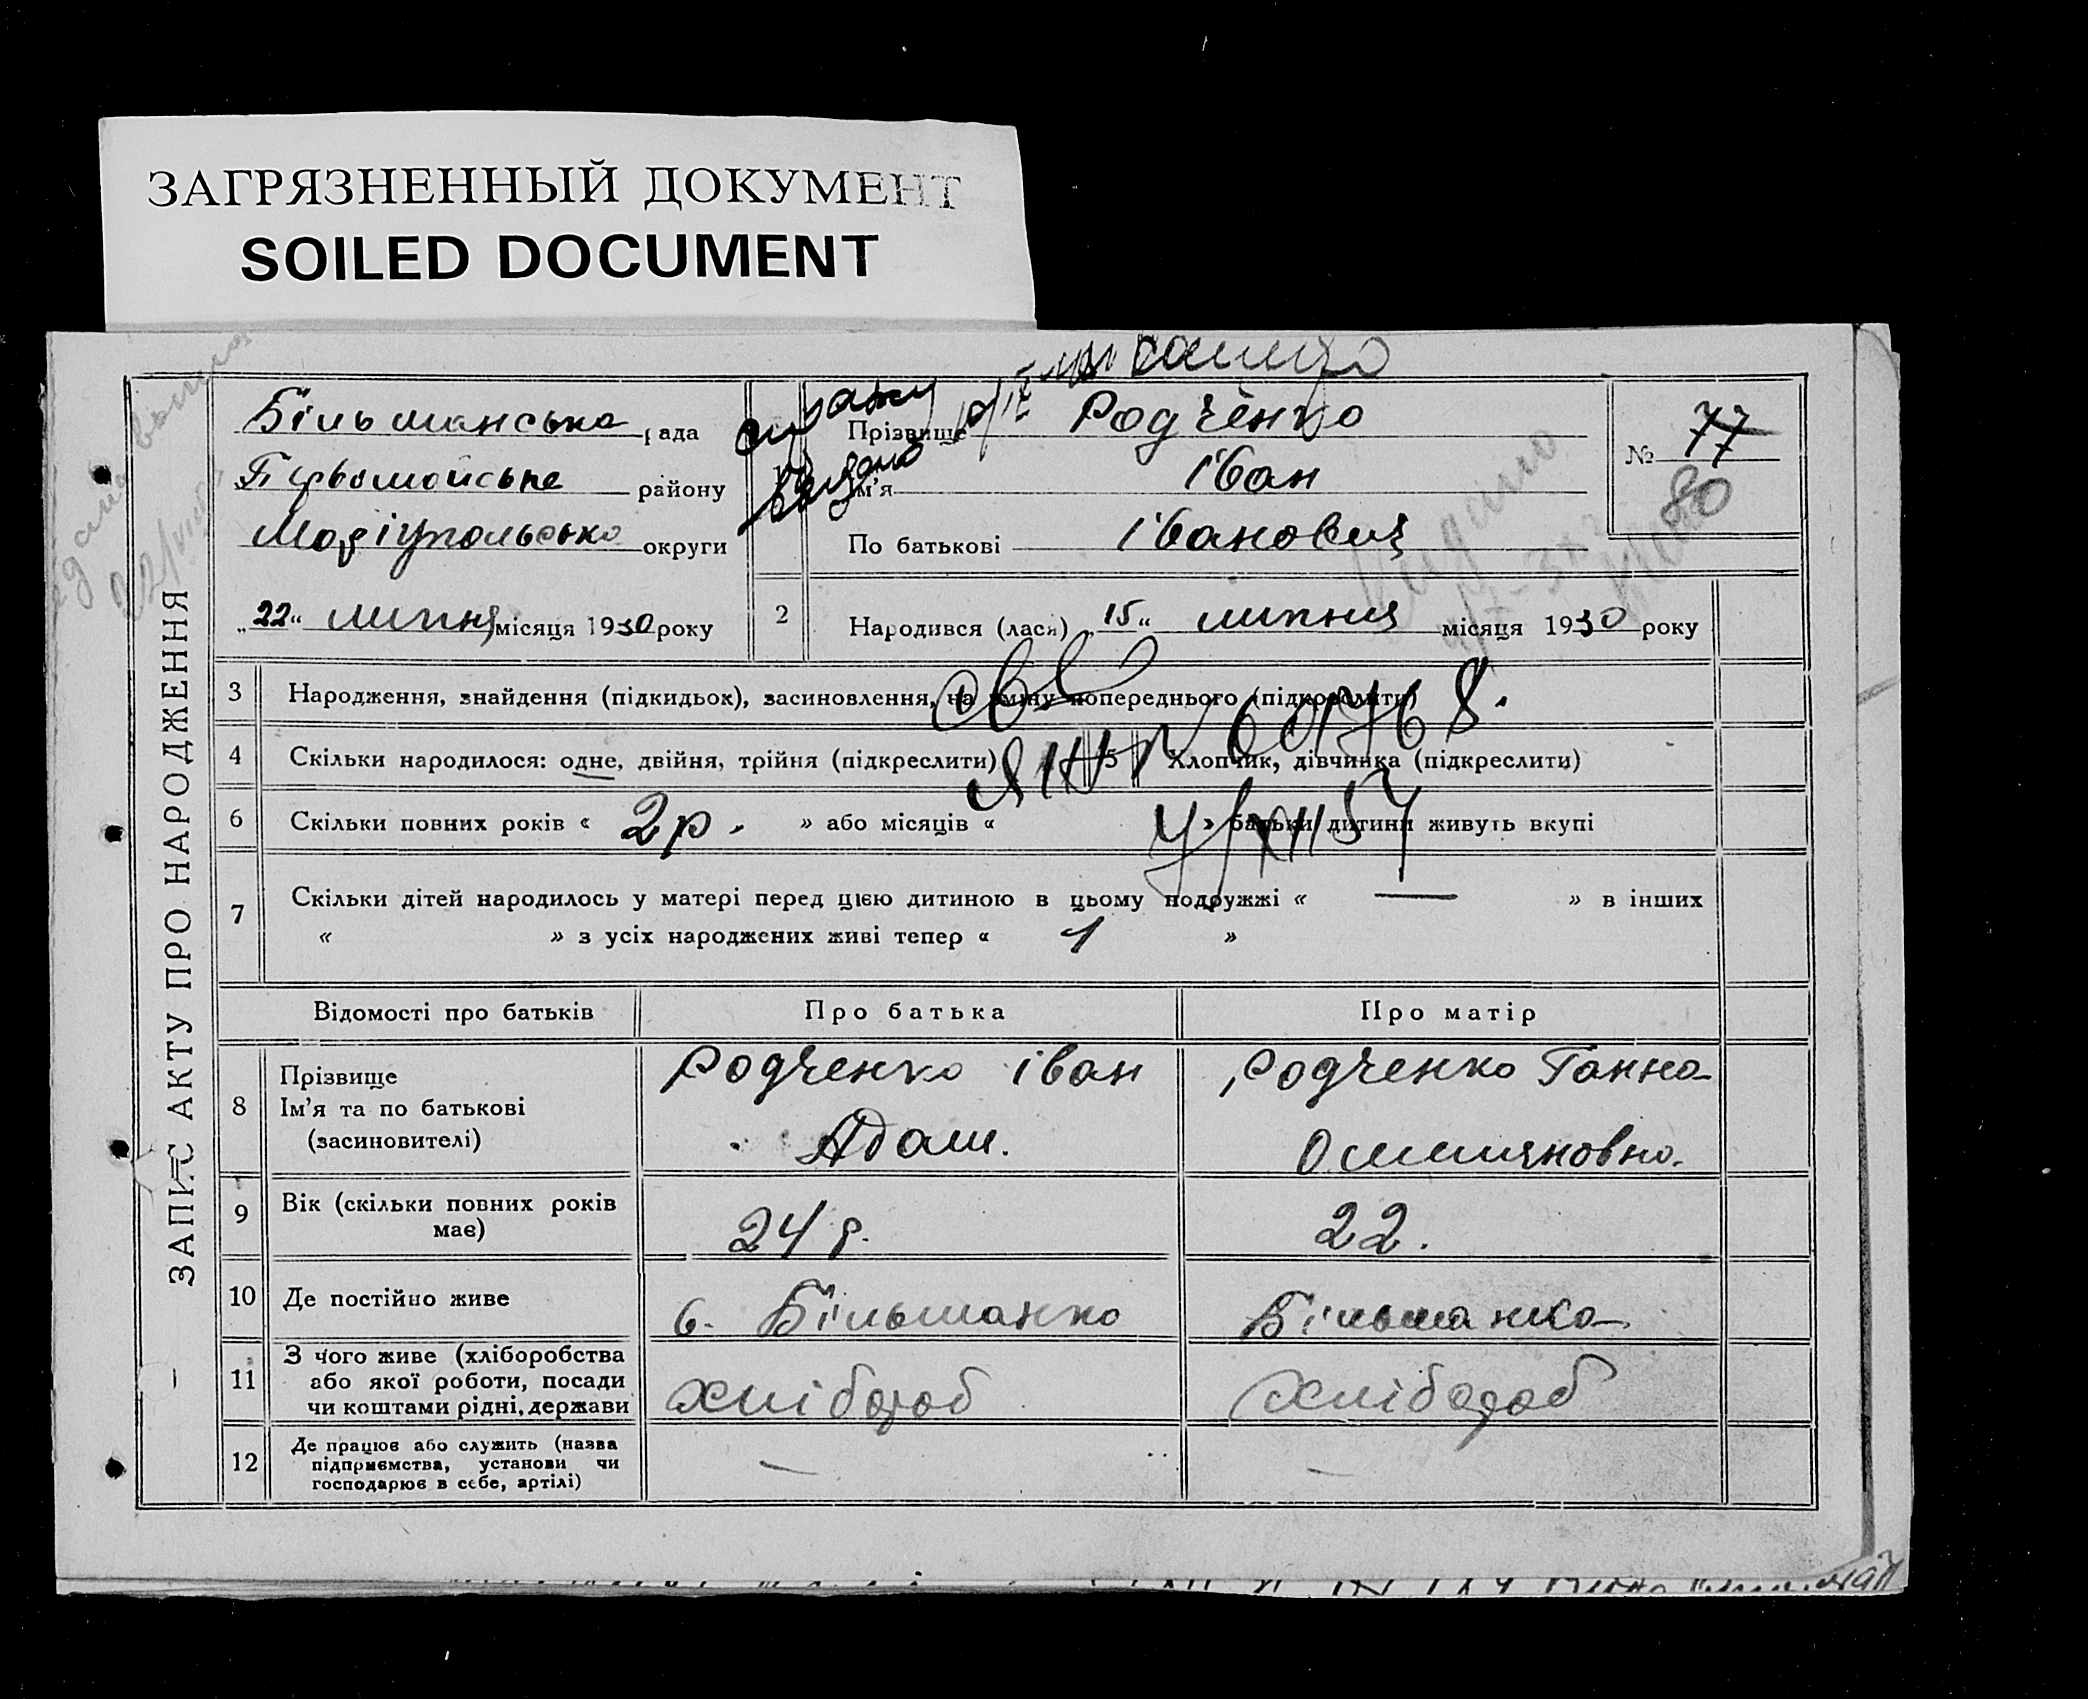 ЗАГРЯЗНЕННЫЙ ДОКУМЕНТ
SOILED DOCUMENT
ЗАПИС АКТУ ПРО НАРОДЖЕННЯ
Більманська рада
Першомайське району
Маріупольсько округи
„22“ липня місяця 1930 року
Прізвище Родченко
Ім'я Іван
По батькові Іванович
№ 77
80
2 Народився (лася) „15“ липня місяця 1930 року
3 Народження, знайдення (підкидьок), засиновлення, на зміну попереднього (підкреслити)
4 Скільки народилося: одне, двійня, трійня (підкреслити) 5 Хлопчик, дівчинка (підкреслити)
6 Скільки повних років « 2 р. » або місяців « » батьки дитини живуть вкупі
7 Скільки дітей народилось у матері перед цією дитиною в цьому подружжі « — » в інших
« » з усіх народжених живі тепер « 1 »
Відомості про батьків Про батька Про матір
8 Прізвище
Ім'я та по батькові
(засиновителі)
Родченко Іван
Адам.
Родченко Ганна
9 Вік (скільки повних років
має)
24 р.
22.
10 Де постійно живе
с. Більманка
Більманка
11 З чого живе (хліборобства
або якої роботи, посади
чи коштами рідні, держави
хлібороб
хлібороб
12 Де працює або служить (назва
підприємства, установи чи
господарює в себе, артілі)
—
—